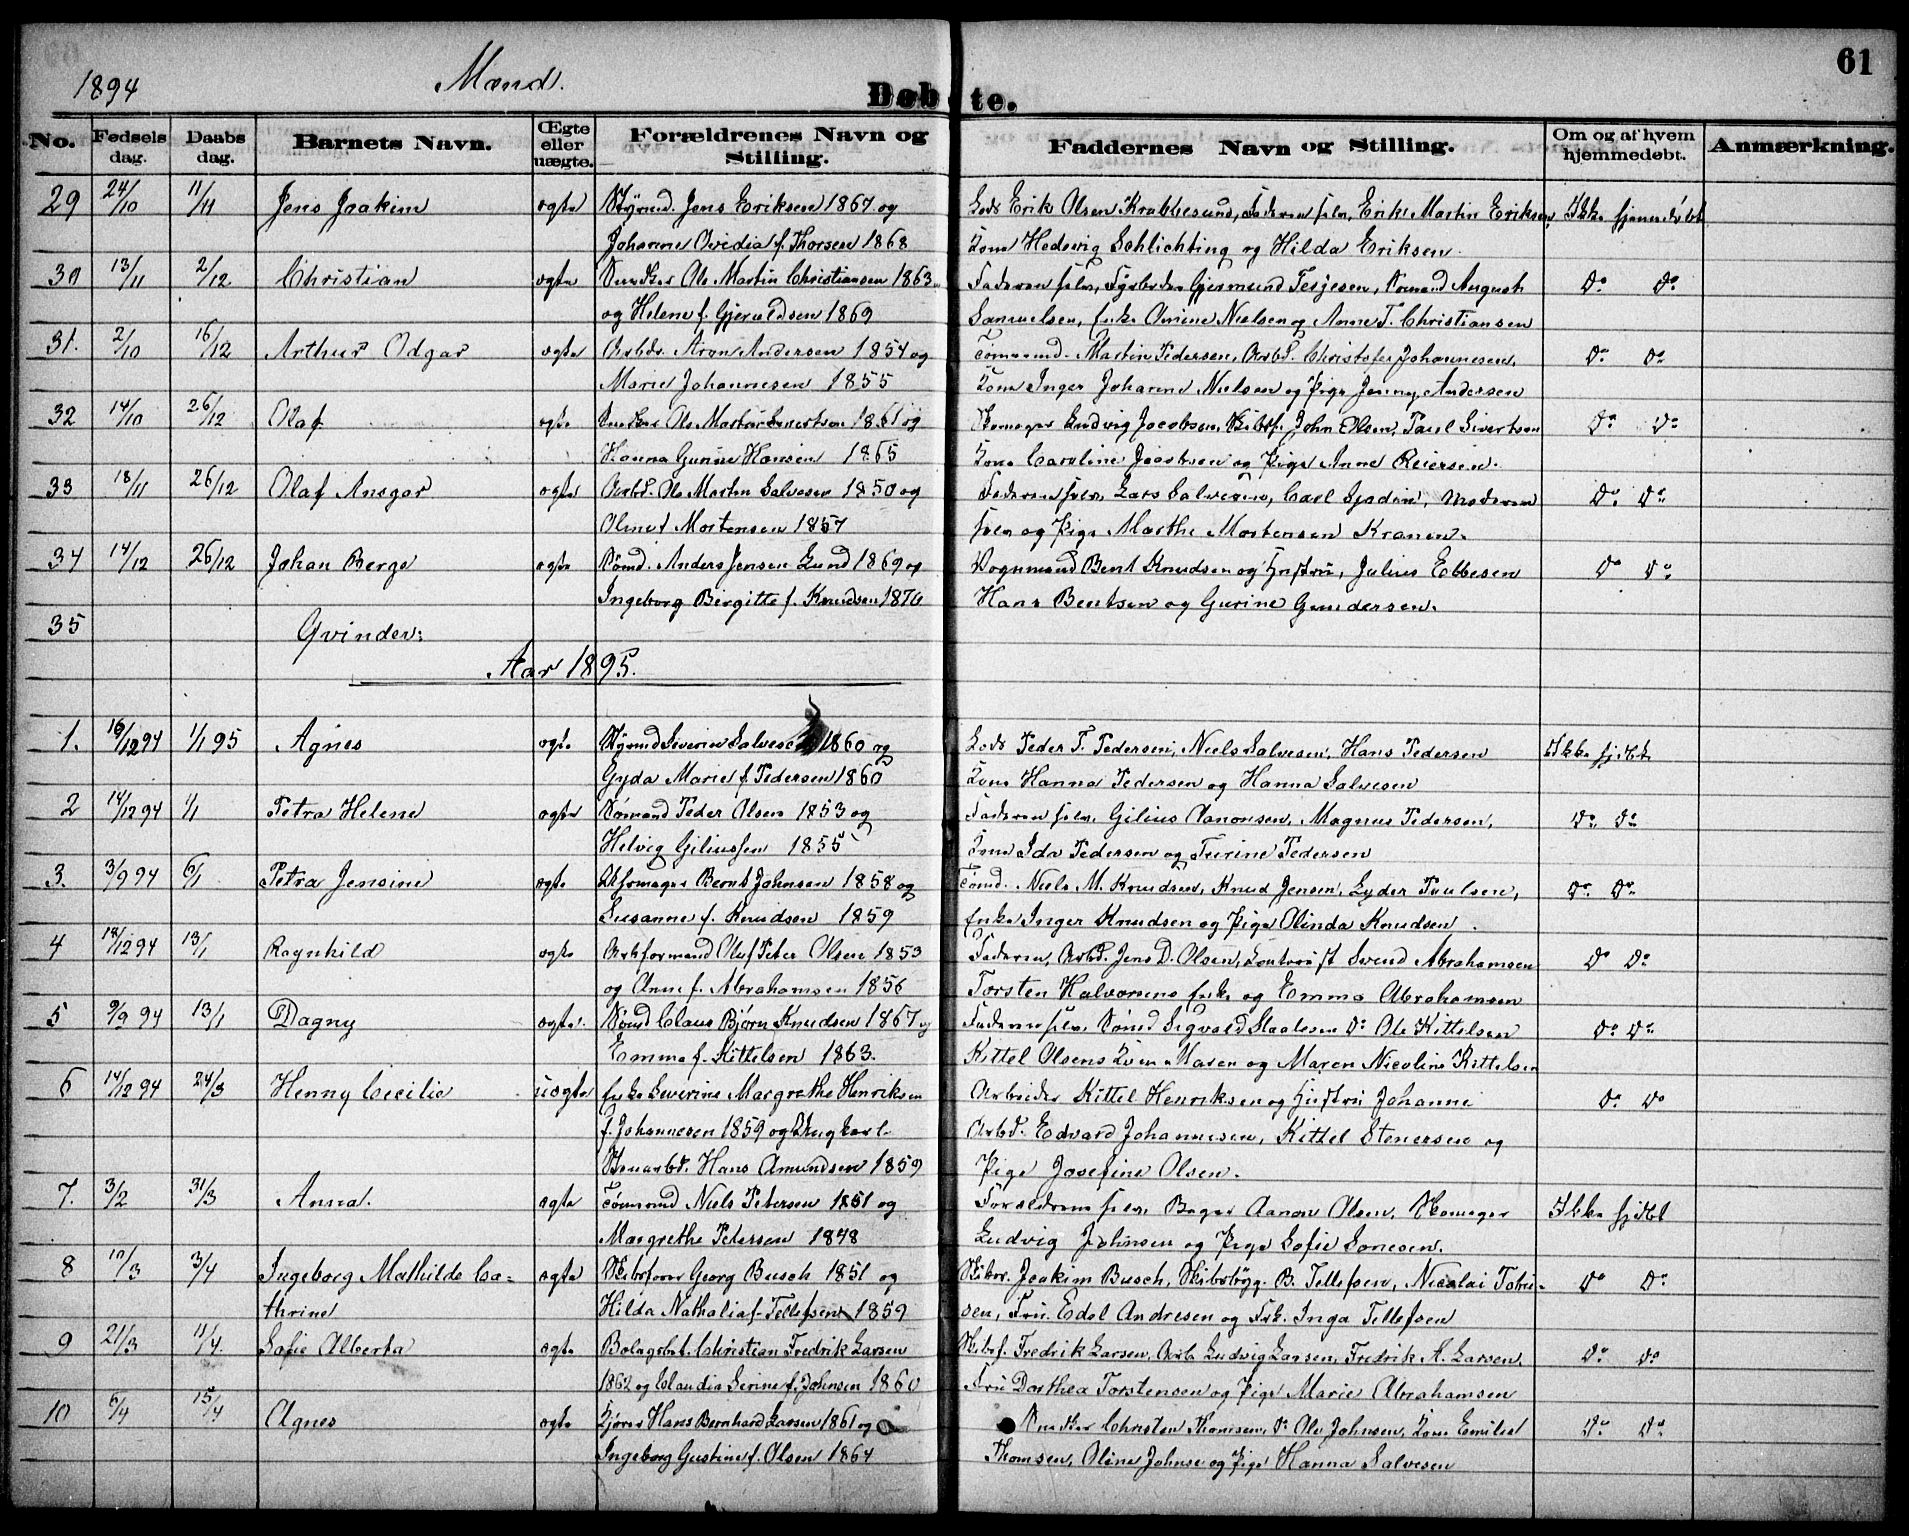 61
1894 Mænd.
Døbte.
No. Fødsels dag. Daabs dag. Barnets Navn. Œgte eller uægte. Forældrenes Navn og Stilling. Faddernes Navn og Stilling. Om og af hvem hjemmedøbt. Anmærkning.
29 24/10 11/11 Jens Joakim ægte Styrmd. Jens Eriksen 1867 og Lods Erik Olsen Krabbesund, Faderen selv, Erik Martin Eriksen, Ikke hjemmedøbt
Johanne Ovidia f. Thorsen 1868 Kone Hedevig Schlichting og Hilda Eriksen.
30 13/11 2/12 Christian ægte Snedker Ole Martin Christiansen 1863 Faderen selv, Fyrbøder Gjermund Terjesen, Sømand August Do Do
og Helene f. Gjeruldsen 1869 Samuelsen, Enke Amine Nielsen og Anne T. Christiansen
31. 2/10 16/12 Arthur Odgar ægte Arbdr. Aron Andersen 1854 og Tømmmd. Martin Pedersen, Arbd. Christofer Johannesen, Do Do
Marie Johannesen 1855 Kone Inger Johanne Nielsen og Pige Jenny Andersen
32 14/10 26/12 Olaf ægte Snedker Ole Martin Sivertsen 1861 og Skomager Ludvig Jacobsen, Skibsf. John Olsen, Paul Sivertsen Do Do
Hanna Gurine Hansen 1865 Kone Caroline Jacobsen og Pige Anne Reiersen.
33 18/11 26/12 Olaf Ansgar ægte Arbd. Ole Martin Salvesen 1850 og Faderen selv, Lars Salvesen, Carl Sjødin, Moderen Do Do
Oline f Mortensen 1857 selv og Pige Marthe Mortensen Kranen.
34 14/12 26/12 Johan Berge ægte Sømd. Anders Jensen Lund 1869 og Vognmand Bent Knudsen og Hustru, Julius Ebbesen Do Do
Ingeborg Birgitte f. Knudsen 1870 Hans Bentsen og Gurine Gundersen.
35 Qvinder:
Aar 1895.
1. 16/12 94 1/1 95 Agnes ægte Styrmd Severin Salvesen 1860 og Lods Peder T. Pedersen, Niels Salvesen, Hans Pedersen Ikke hjdbt
Gyda Marie f. Pedersen 1860 Kone Hanna Pedersen og Hanna Salvesen
2 14/12 94 1/1 Petra Helene ægte Sømand Peder Olsen 1853 og Faderen selv, Gilius Aanonsen, Magnus Pedersen, Do Do
Helvig Giliussen 1855 Kone Ida Pedersen og Turine Pedersen
3. 3/9 94 6/1 Petra Jensine ægte Uhrmager Bernt Johnsen 1858 og Tømd. Niels M. Knudsen, Knud Jensen, Lyder Paulsen, Do Do
Susanne f. Knudsen 1859 Enke Inger Knudsen og Pige Olinda Knudsen.
4 18/12 94 13/1 Ragnhild ægte Arbformand Oluf Peter Olsen 1853 Faderen, Arbd. Jens D. Olsen, Kontorist Svend Abrahamsen Do Do
og Anne f. Abrahamsen 1856 Torsten Halvorsens Enke og Emma Abrahamsen
5 9/9 94 13/1 Dagny ægte. Sømd Claus Bjørn Knudsen 1867 og Faderen selv, Sømd Sigvald Staalesen Do Ole Kittelsen Do Do
Emma f. Kittelsen 1863. Kittel Olsens Kone Maren og Maren Nicoline Kittelsen
6 14/12 94 24/3 Henny Cecilie uægte Enke Severine Margrethe Henriksen Arbeider Kittel Henriksen og Hustru Johanne Do Do
f. Johannesen 1859 og Ungkarl Arbd. Edvard Johannesen, Kittel Stenersen og
Hans Amundsen 1859 Pige Josefine Olsen.
7. 3/2 31/3 Anna. ægte Tømmmd Niels Petersen 1851 og Forældrene selv, Bager Aanon Olsen, Skomager Ikke hjdbt
Margrethe Petersen 1848 Ludvig Johnsen og Pige Sofie Sonesen.
8 10/3 3/4 Ingeborg Mathilde Ca- ægte Skibsfører Georg Busch 1851 og Skibsr. Joakim Busch, Skibsbygg. B. Tellefsen, Nicolai Tobie- Do Do
thrine Hilda Nathalia f. Tellefsen 1859 sen, Fru Edel Andresen og Frk. Inga Tellefsen
9 21/3 11/4. Sofie Alberta ægte Bolagsbet. Christian Fredrik Larsen Skibsf. Fredrik Larsen, Arb. Ludvig Larsen, Fredrik A. Larsen, Do Do
1862 og Claudia Serine f. Johnsen 1860 Fru Dorthea Torstensen og Pige Marie Abrahamsen
10 6/4 15/4 Agnes ægte Kjører Hans Bernhard Larsen 1861 og Snedker Christen Thomsen, Do Ole Johnsen, Kone Emilie Do Do
Ingeborg Gustine f. Olsen 1864 Thomsen, Oline Johnsen og Pige Hanna Salvesen